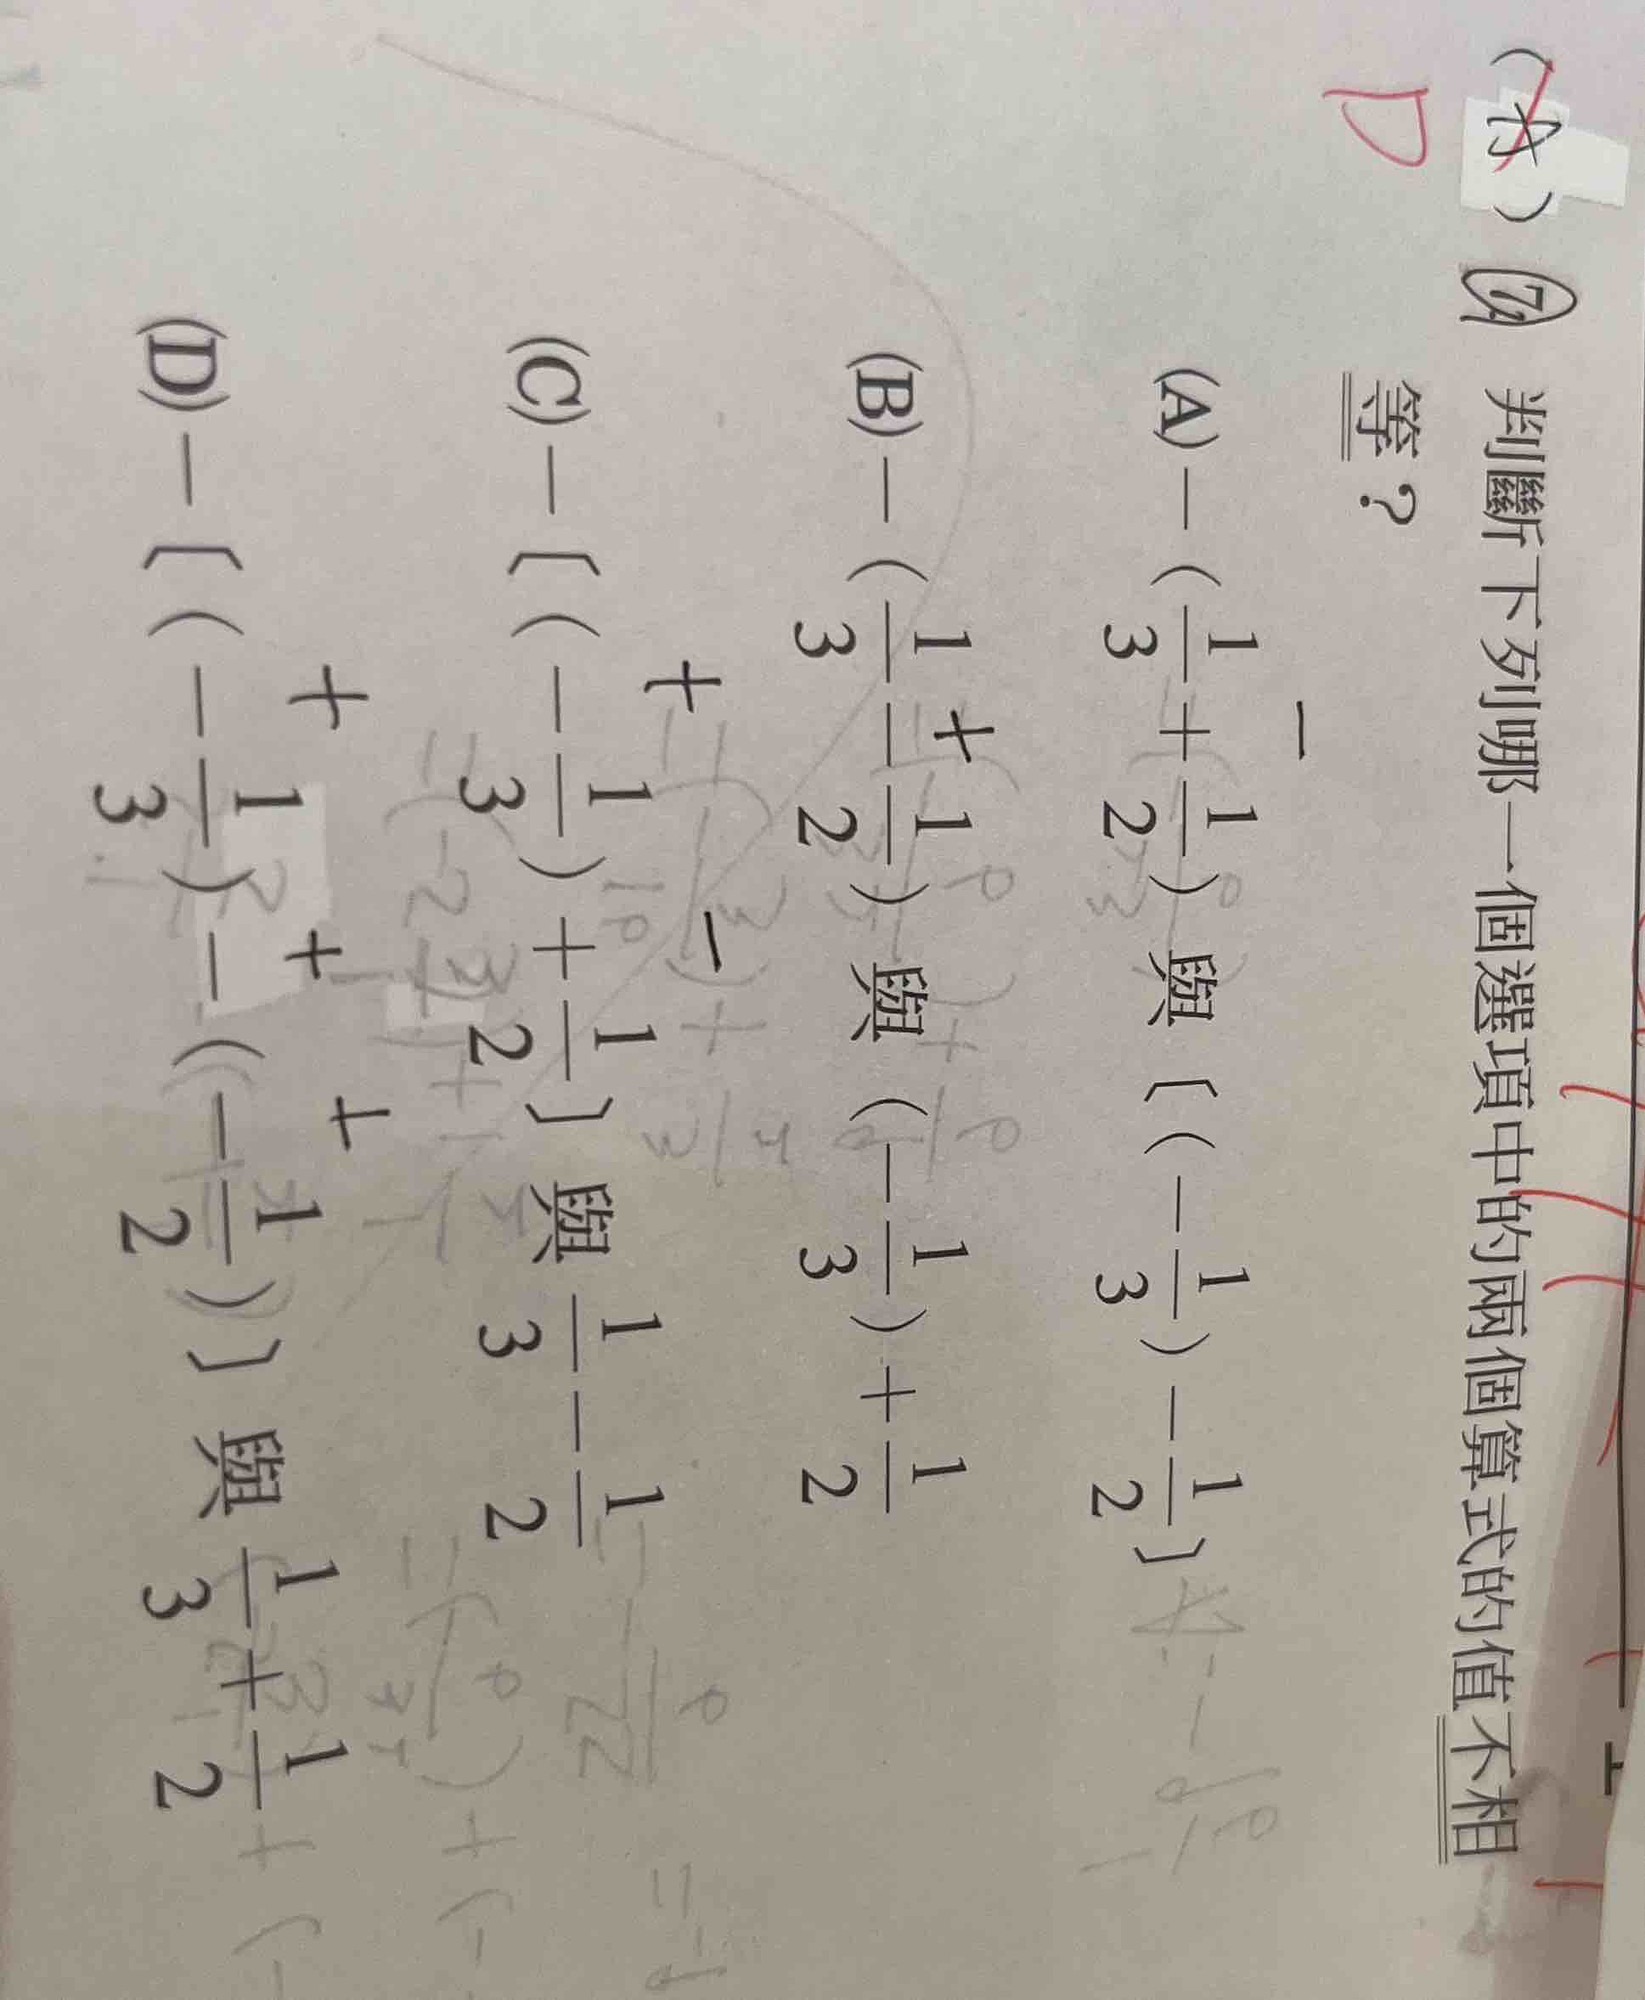 (A) 7. 判斷下列哪一個選項中的兩個算式的值不相
D 等？
(A)－（1/3＋1/2）與〔（－1/3）－1/2〕
(B)－（1/3－1/2）與（－1/3）＋1/2
(C)－〔（－1/3）＋1/2〕與 1/3－1/2
(D)－〔（－1/3）－（－1/2）〕與 1/3＋1/2